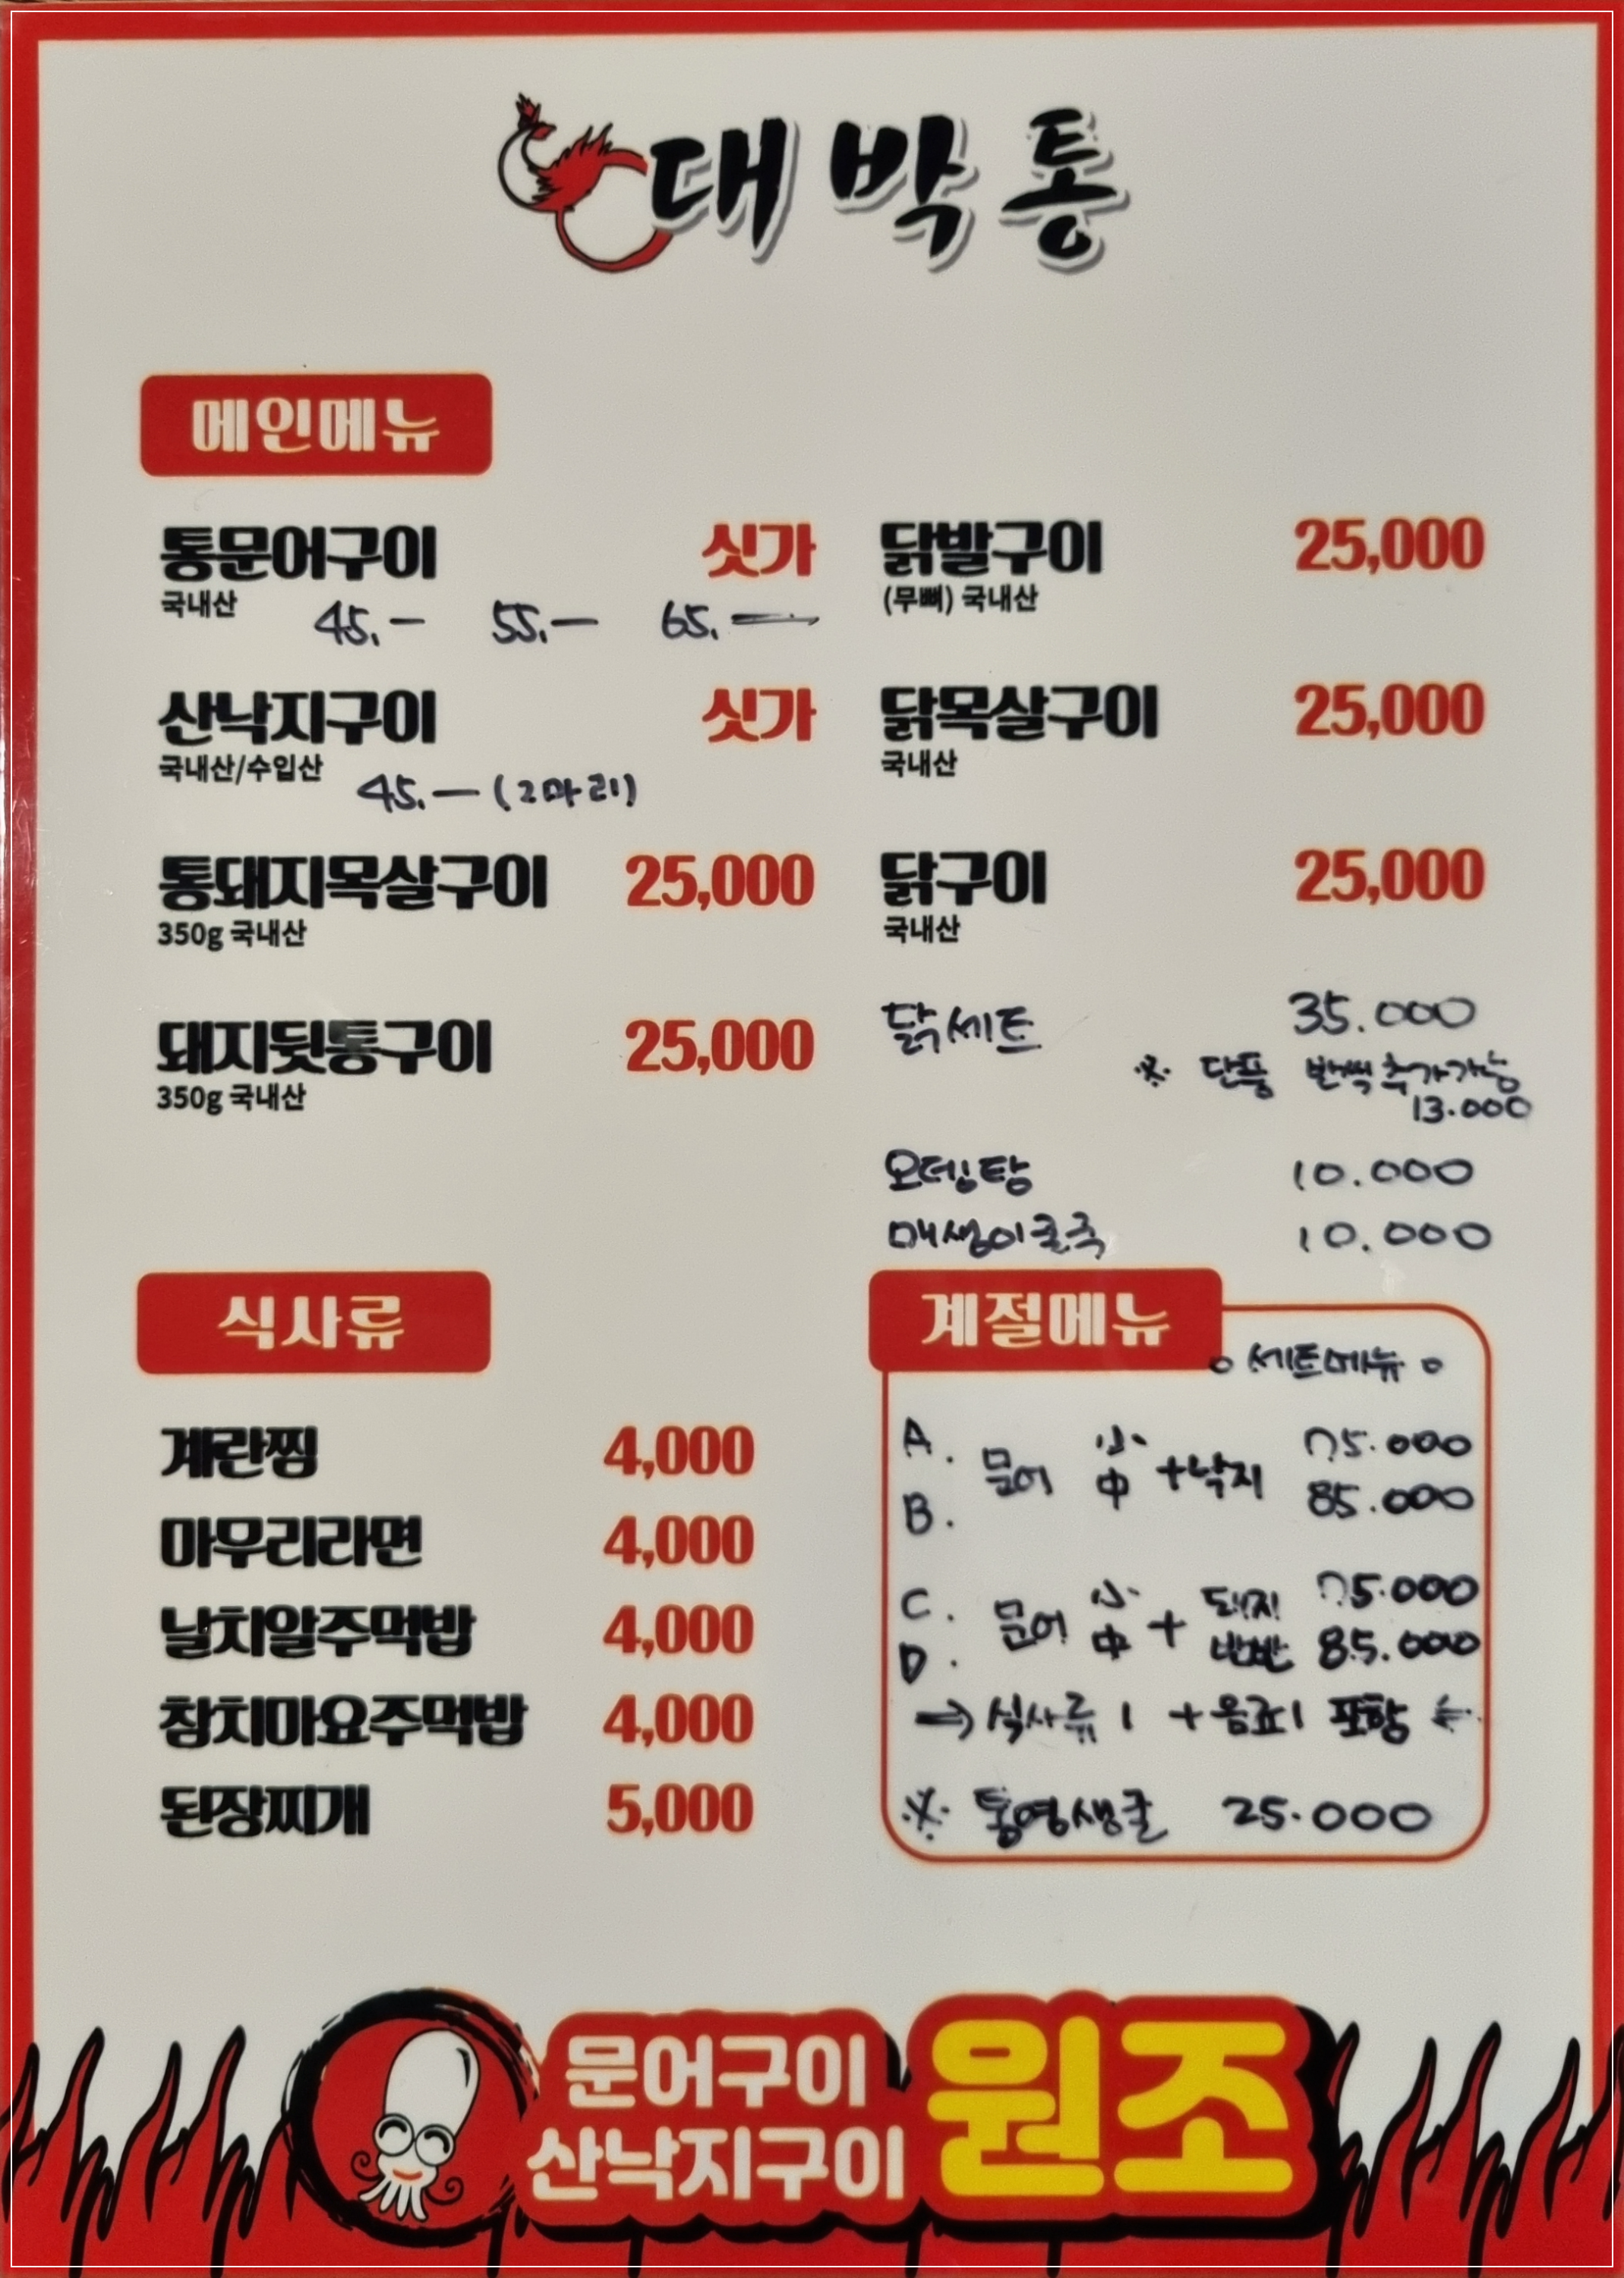 대박통
메인메뉴
통문어구이 싯가
국내산 45.— 55.— 65.—
산낙지구이 싯가
국내산/수입산 45.— (2마리)
통돼지목살구이 25,000
350g 국내산
돼지뒷통구이 25,000
350g 국내산
닭발구이 25,000
(무뼈) 국내산
닭목살구이 25,000
국내산
닭구이 25,000
국내산
닭세트 35.000
※ 단품 반씩 추가가능
13.000
오뎅탕 10.000
매생이굴국 10.000
식사류
계란찜 4,000
마무리라면 4,000
날치알주먹밥 4,000
참치마요주먹밥 4,000
된장찌개 5,000
계절메뉴
○ 세트메뉴 ○
A. 문어 小 +낙지 75.000
B. 中 85.000
C. 문어 小 + 돼지 75.000
D. 中 반반 85.000
→ 식사류 1 + 음료 1 포함 ←
※ 통영생굴 25.000
문어구이
산낙지구이
원조